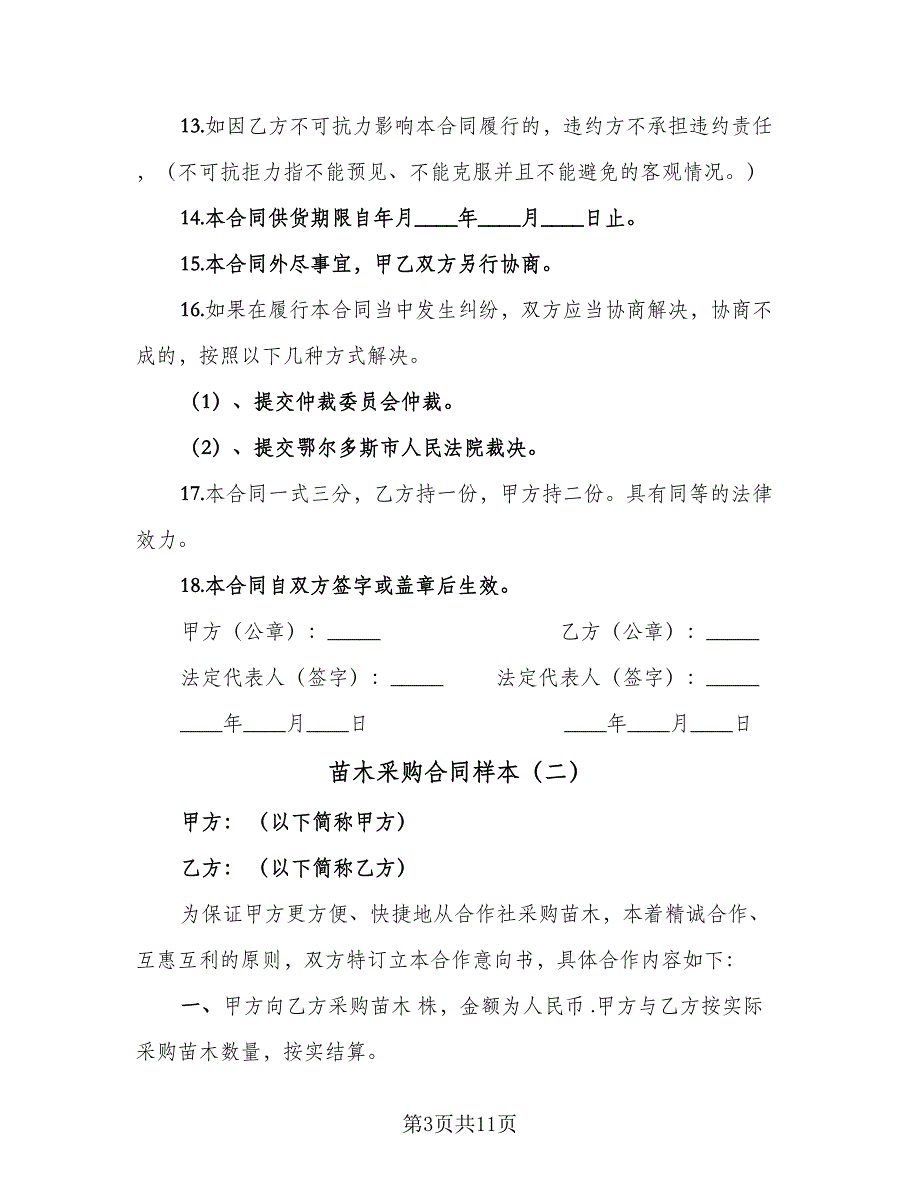 13.如因乙方不可抗力影响本合同履行的，违约方不承担违约责任
，（不可抗拒力指不能预见、不能克服并且不能避免的客观情况。）
14.本合同供货期限自年月____年____月____日止。
15.本合同外尽事宜，甲乙双方另行协商。
16.如果在履行本合同当中发生纠纷，双方应当协商解决，协商不
成的，按照以下几种方式解决。
（1）、提交仲裁委员会仲裁。
（2）、提交鄂尔多斯市人民法院裁决。
17.本合同一式三分，乙方持一份，甲方持二份。具有同等的法律
效力。
18.本合同自双方签字或盖章后生效。
甲方（公章）：_____ 乙方（公章）：_____
法定代表人（签字）：_____ 法定代表人（签字）：_____
____年____月____日 ____年____月____日
苗木采购合同样本（二）
甲方： （以下简称甲方）
乙方： （以下简称乙方）
为保证甲方更方便、快捷地从合作社采购苗木，本着精诚合作、
互惠互利的原则，双方特订立本合作意向书，具体合作内容如下：
一、甲方向乙方采购苗木 株，金额为人民币 .甲方与乙方按实际
采购苗木数量，按实结算。
第3页共11页